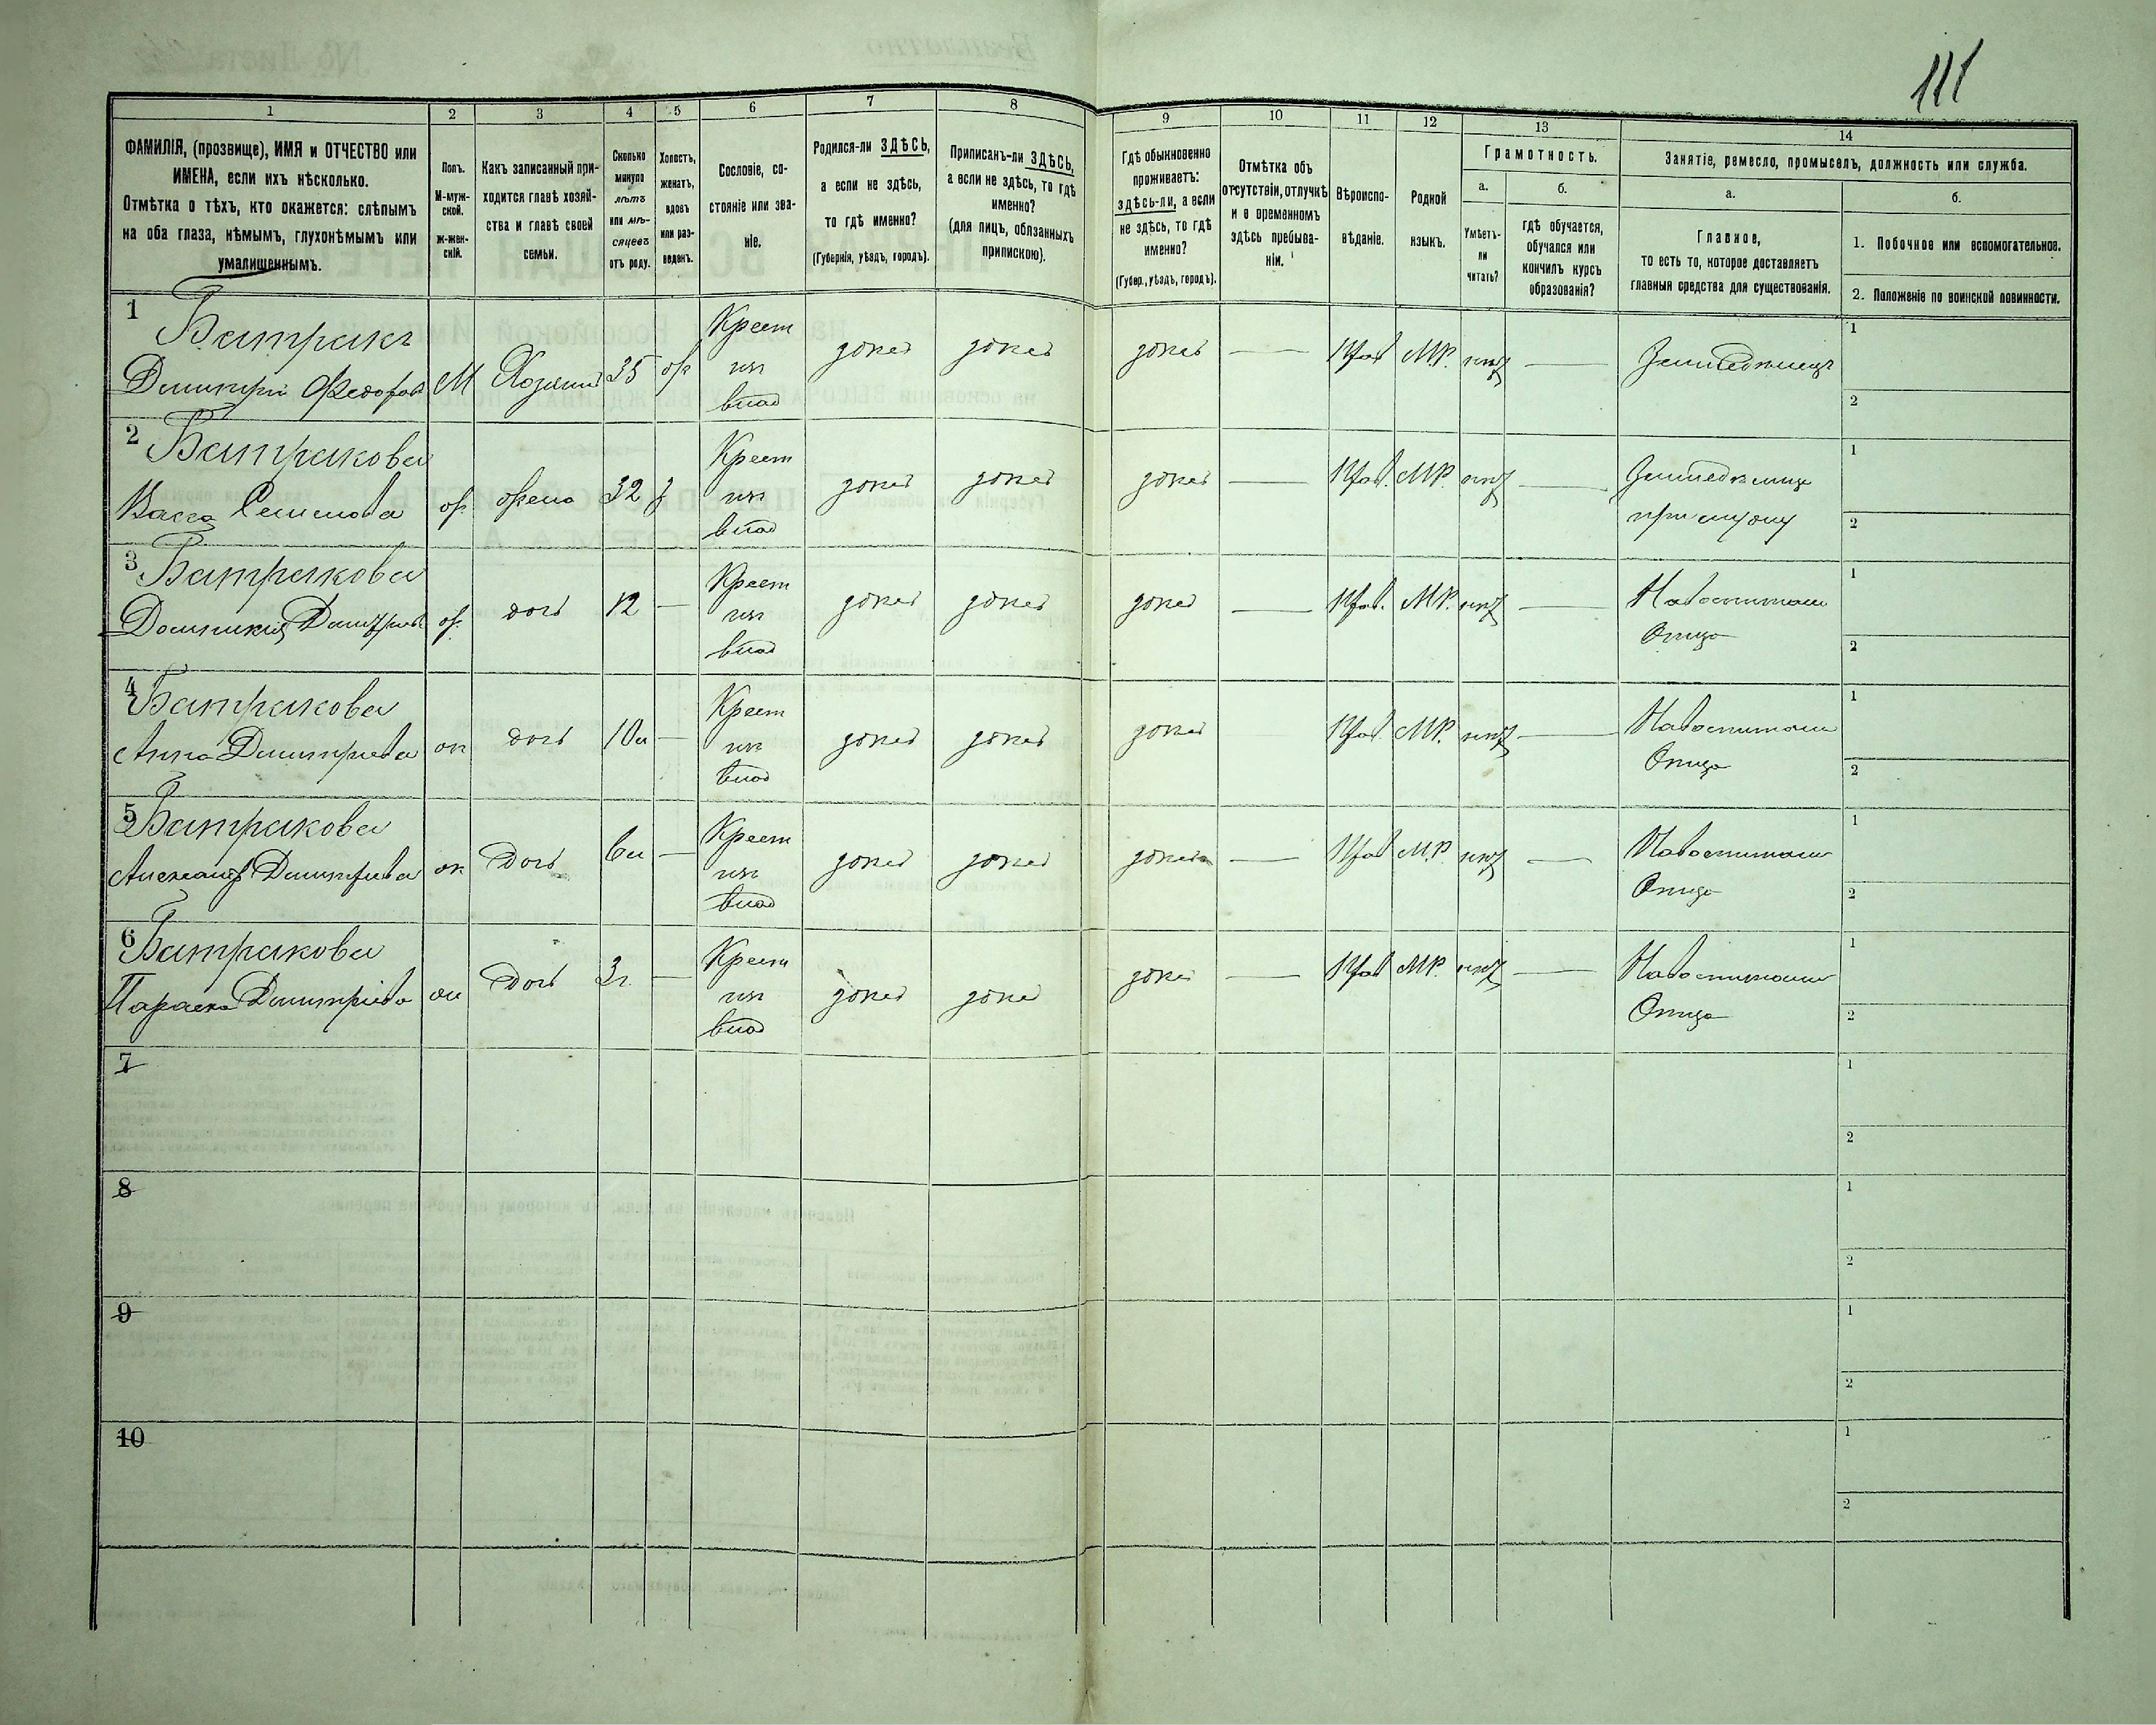 111
1
2
3
4
5
6
7
8
9
10
11
12
13
14
ФАМИЛІЯ, (прозвище), ИМЯ и ОТЧЕСТВО или
ИМЕНА, если ихъ нѣсколько.
Отмѣтка о тѣхъ, кто окажется: слѣпымъ
на оба глаза, нѣмымъ, глухонѣмымъ или
умалишеннымъ.
Полъ.
М-муж-
ской.
Ж-жен-
скій.
Какъ записанный при-
ходится главѣ хозяй-
ства и главѣ своей
семьи.
Сколько
минуло
лѣтъ
или мѣ-
сяцевъ
отъ роду.
Холостъ,
женатъ,
вдовъ
или раз-
веденъ.
Сословіе, со-
стояніе или зва-
ніе.
Родился-ли ЗДѢСЬ,
а если не здѣсь,
то гдѣ именно?
(Губернія, уѣздъ, городъ).
Приписанъ-ли ЗДѢСЬ,
а если не здѣсь, то гдѣ
именно?
(для лицъ, обязанныхъ
припискою).
Гдѣ обыкновенно
проживаетъ:
здѣсь-ли, а если
не здѣсь, то гдѣ
именно?
(Губер., уѣздъ, городъ).
Отмѣтка объ
отсутствіи, отлучкѣ
и о временномъ
здѣсь пребыва-
ніи.
Вѣроиспо-
вѣданіе.
Родной
языкъ.
Грамотность.
а.
Умѣетъ-
ли
читать?
б.
гдѣ обучается,
обучался или
кончилъ курсъ
образованія?
Занятіе, ремесло, промыселъ, должность или служба.
а.
Главное,
то есть то, которое доставляетъ
главныя средства для существованія.
б.
1. Побочное или вспомогательное.
2. Положеніе по воинской повинности.
1
Батракъ
Дмитрій Федоров М Хозяинъ 35 ж Крест из влад здесь здесь здесь — Прав М.Р. нет — Земледелец
1
2
2
Батракова
Васса Семенова ж жена 32 з Крест из влад здесь здесь здесь — Прав. М.Р. нет — Земледелица
при мужу
1
2
3
Батракова
Домникия Дмитриев ж дочь 12 — Крест из влад здесь здесь здесь — Прав. М.Р. нет — На воспитании
Отца
1
2
4
Батракова
Анна Дмитриева ж дочь 10 л — Крест из влад здесь здесь здесь Прав М.Р. нет — На воспитании
Отца
1
2
5
Батракова
Александ Дмитриева ж Дочь 6 л — Крест из влад здесь здесь здесь — Прав М.Р. нет — На воспитании
Отца
1
2
6
Батракова
Параска Дмитриева ж Дочь 3 г. — Крест из влад здесь здесь здесь — Прав М.Р. нет — На воспитании
Отца
1
2
7
1
2
8
1
2
9
1
2
10
1
2